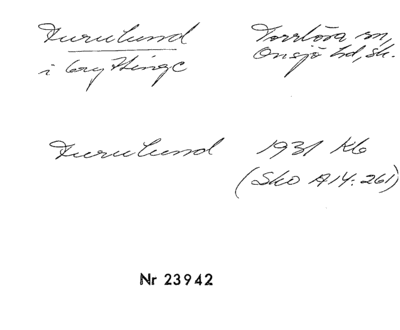 Furulund Torrlösa sn,
i Gryttinge Onsjö hd, sk.
Furulund 1931 Kb
(Sko A14: 261)
Nr 23942